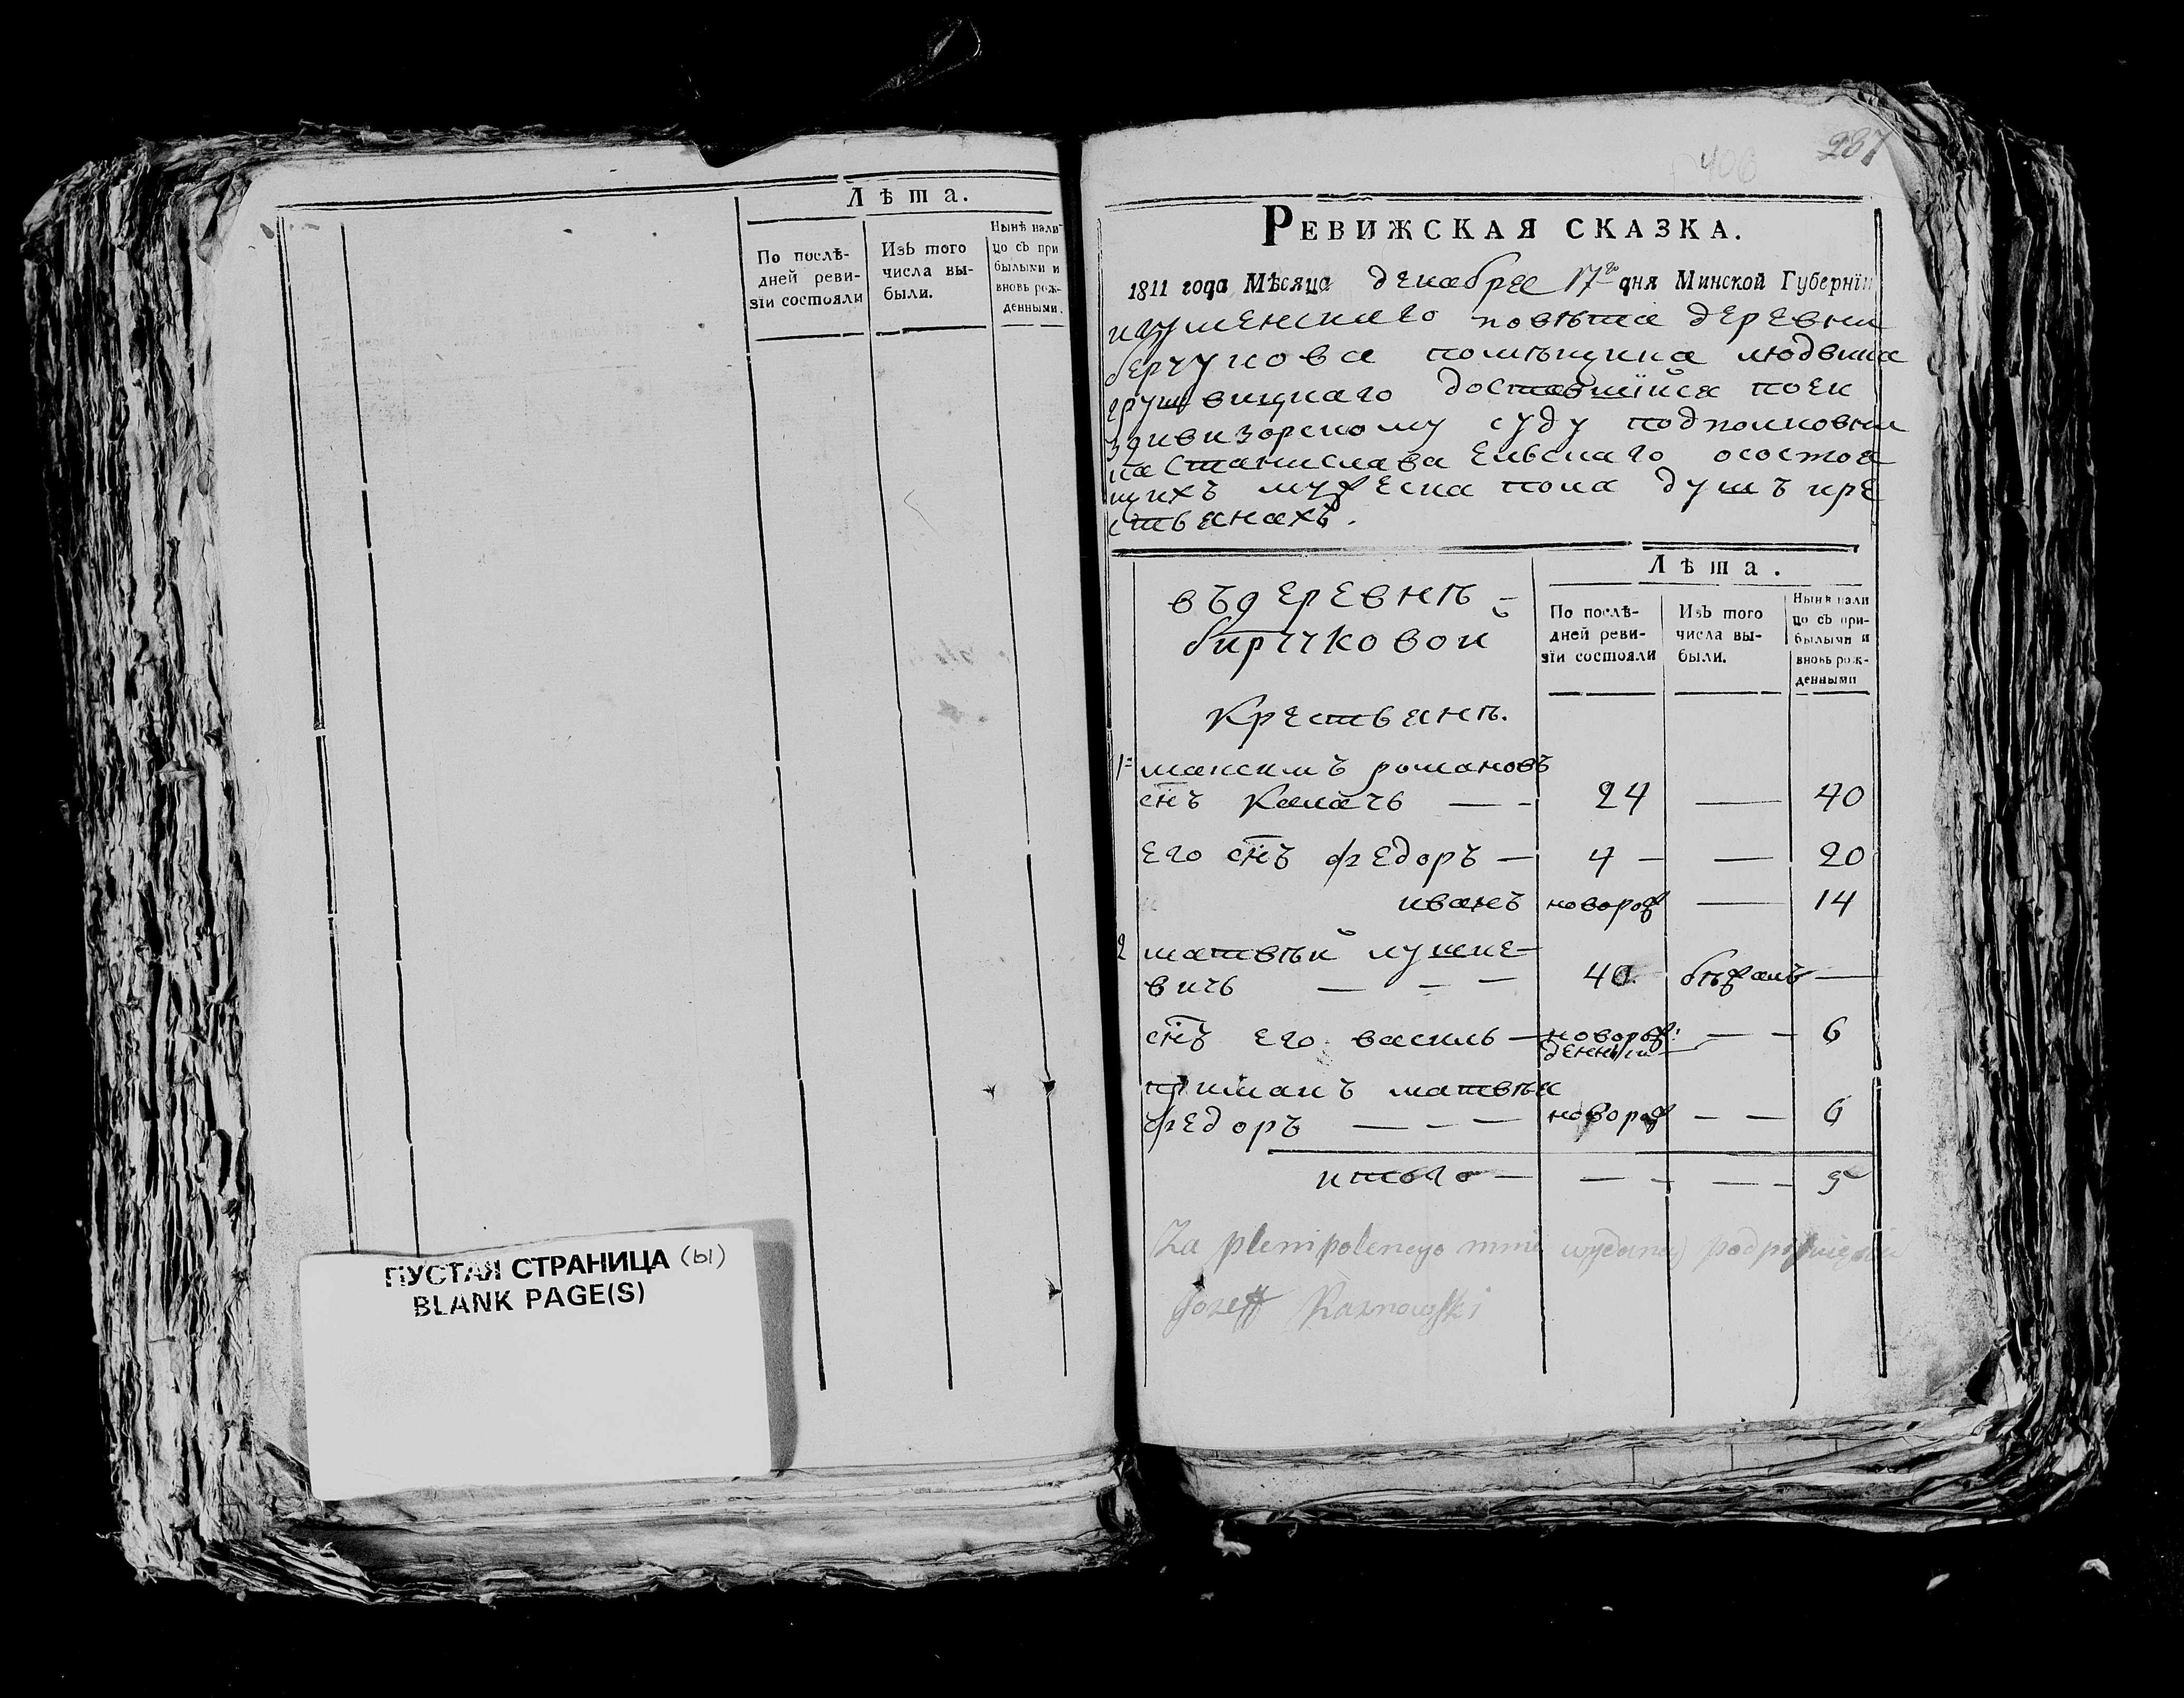 Лѣта.
По послѣ-
дней реви-
зїи состояли
Изъ того
числа вы-
были.
Нынѣ нали
цо съ при
былыми и
вновь рож-
денными.
ПУСТАЯ СТРАНИЦА (ы)
BLANK PAGE(S)
406
237
РЕВИЖСКАЯ СКАЗКА.
1811 года Мѣсяца декабря 17го дня Минской Губернїи
игуменскаго повѣта деревни
помѣщика людвика
грушвицкаго доставшїйся поек
здивизорскому суду подполковни
ка Станислава Ельскаго осостоя
щихъ мужеска пола душъ кре
стьянахъ.
въдеревнѣ
бирчковой
Крестьянѣ.
Лѣта.
По послѣ-
дней реви-
зїи состояли
Изъ того
числа вы-
были.
Нынѣ нали
цо съ при-
былыми и
вновь рож-
денными
1 максимъ романовъ
снъ Калачъ — - 24 — 40
Его снъ федоръ — 4 — — 20
иванъ новорож — 14
2 матвѣй лушке-
вичь — - — 40 бѣжалъ —
снъ его василь — новорож:
денный — — 6
примакъ матвѣя
федоръ — - — новорож — — 6
итого — — - — - 5
Za plenipotencyo mnie wydaney podpisuię
Jozeff Karnowski